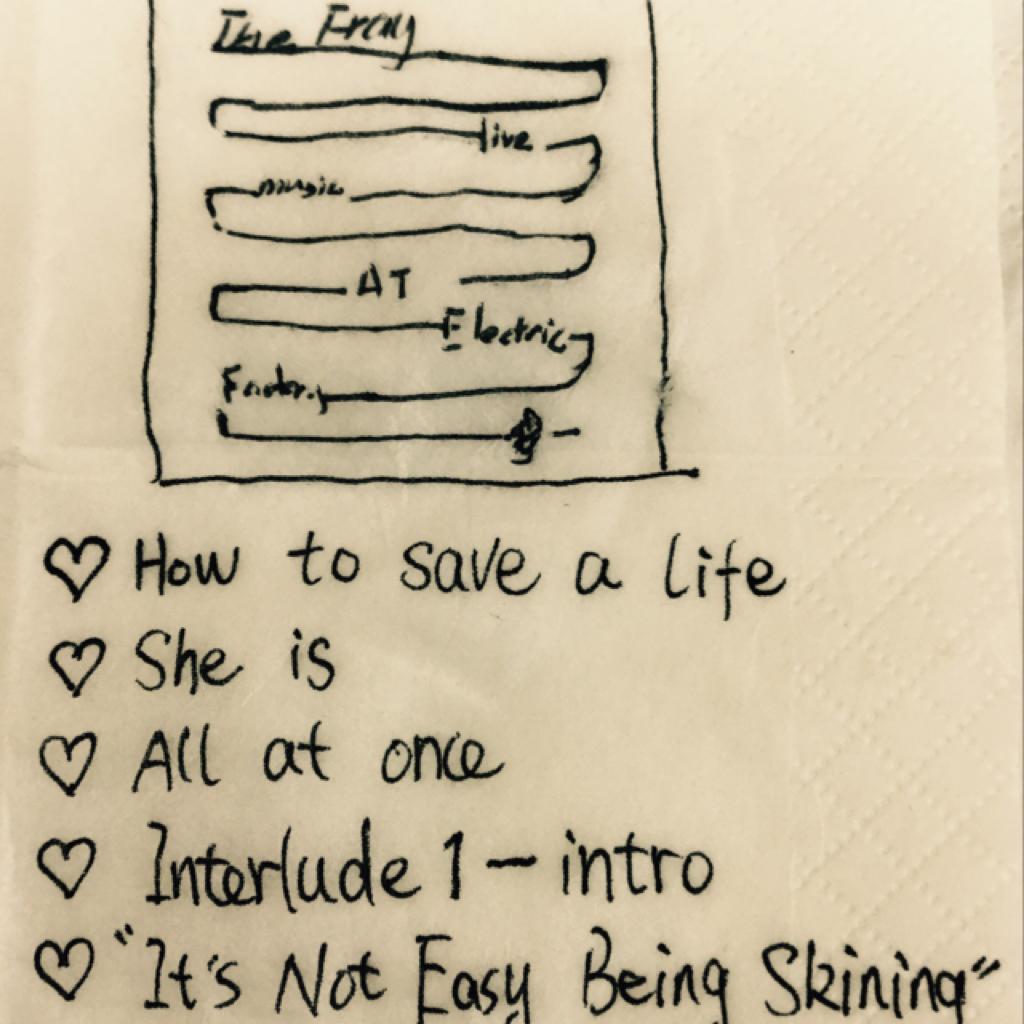 The Fray
live
music
AT
Electric
Factory
How to save a life
She is
All at once
Interlude 1 - intro
"It's Not Easy Being Skining"